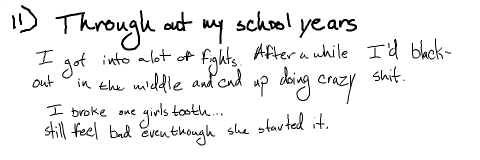 11) Through out my school years
I got into alot of fights. After a while I'd black-
out in the middle and end up doing crazy shit.
I broke one girls tooth...
still feel bad eventhough she started it.